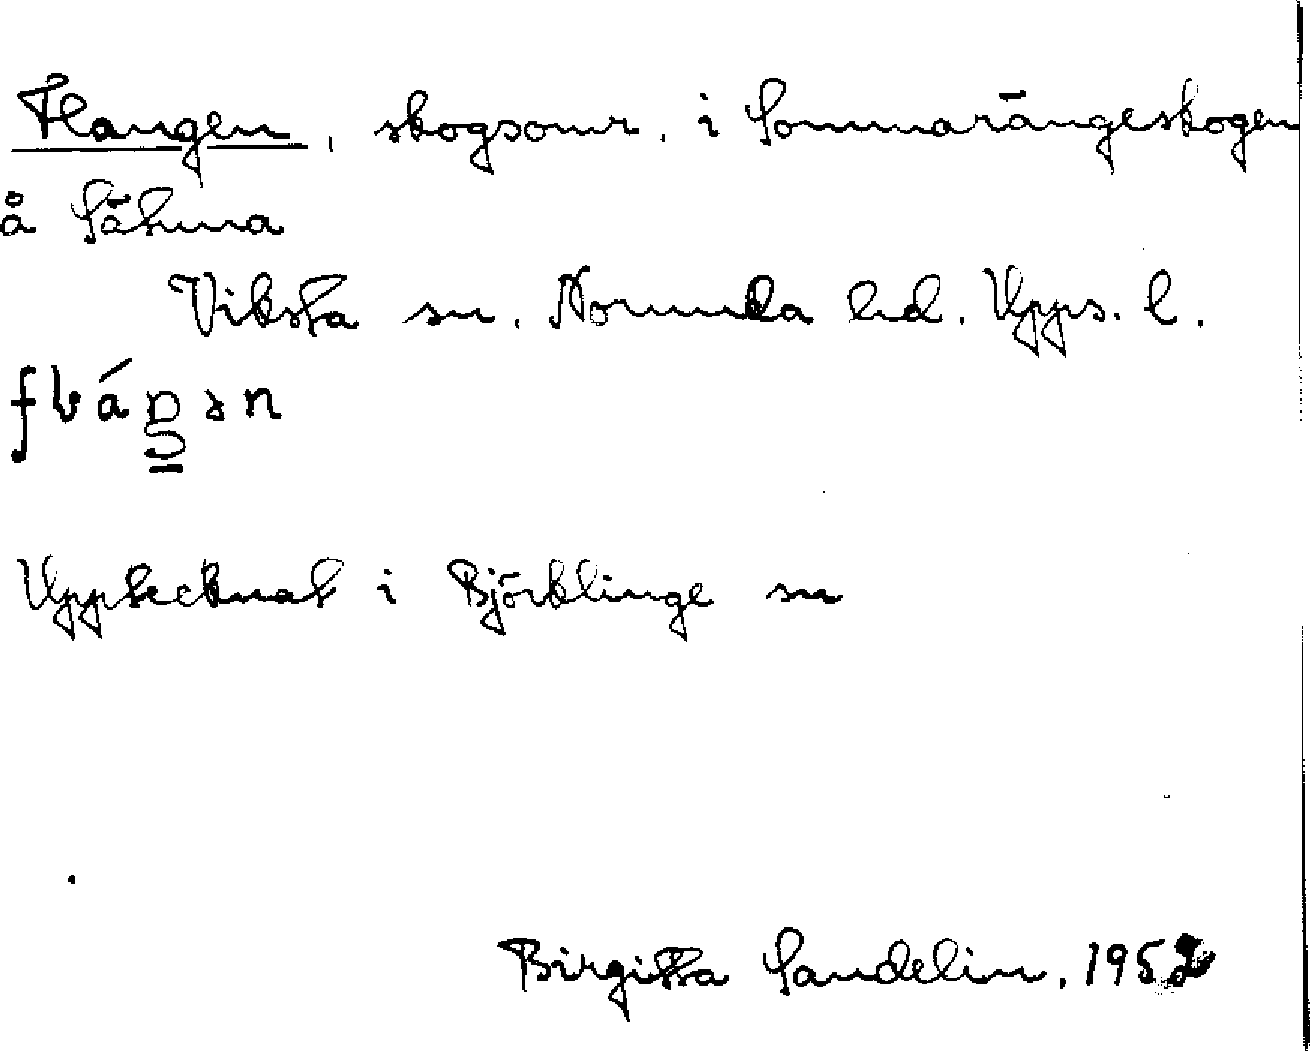 Flangen, skogsomr. i Sommarängeskogen
å Sätuna
Viksta sn. Norunda hd. Upps. l.
Upptecknat i Björklinge sn
Birgitta Sandelin, 1952